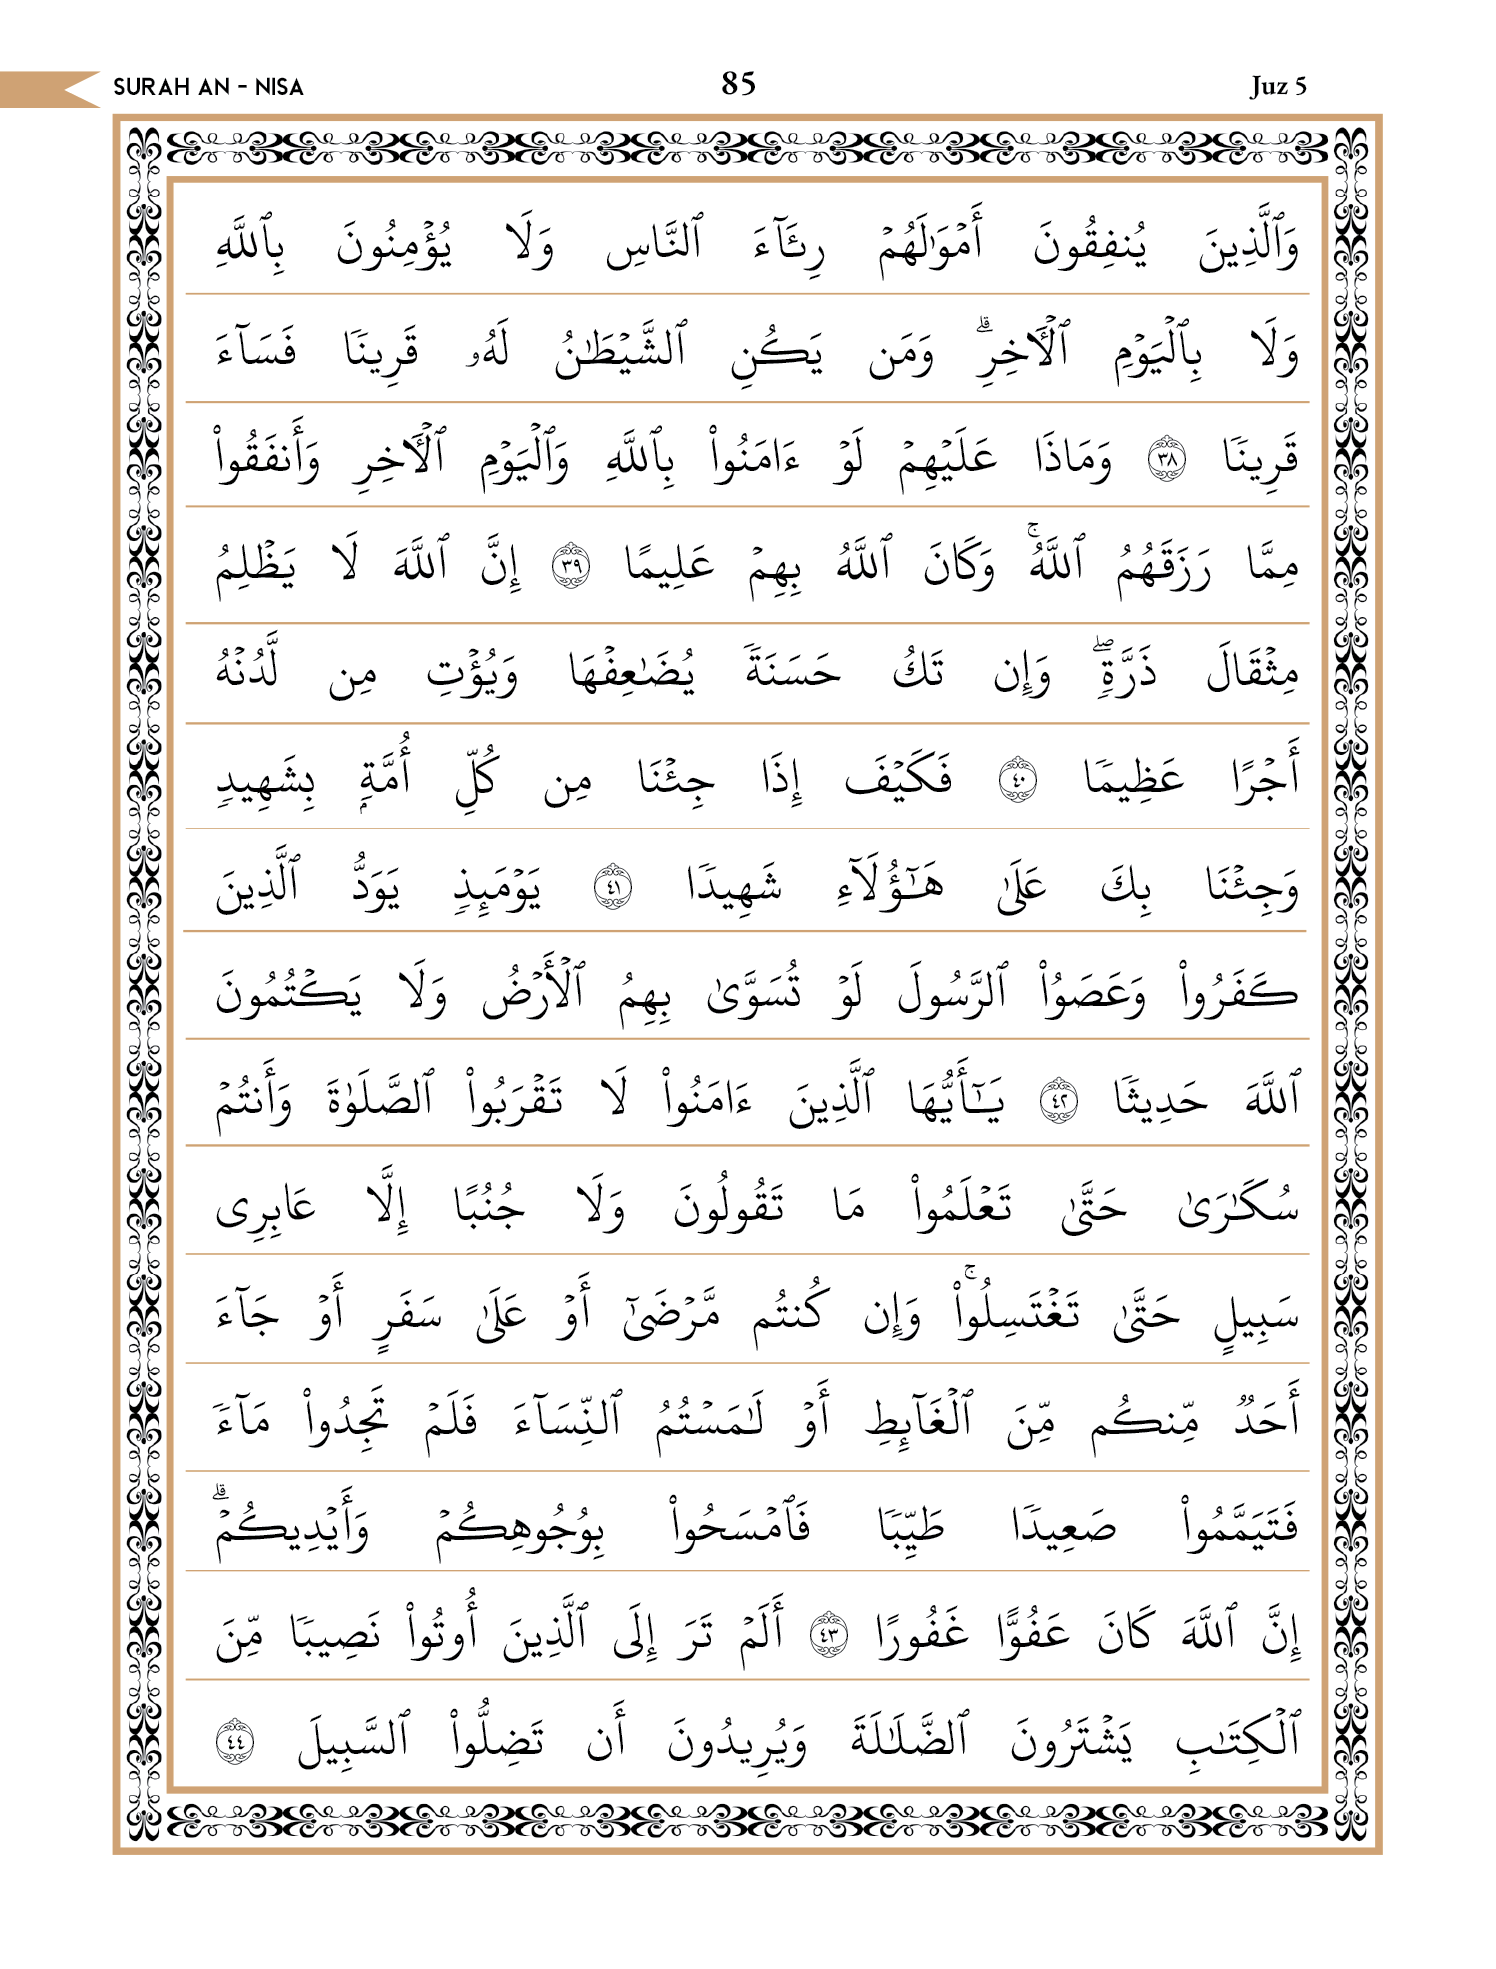 SURAH AN - NISA 85 Juz 5
وَٱلَّذِينَ يُنفِقُونَ أَمۡوَٰلَهُمۡ رِئَآءَ ٱلنَّاسِ وَلَا يُؤۡمِنُونَ بِٱللَّهِ
وَلَا بِٱلۡيَوۡمِ ٱلۡأٓخِرِۗ وَمَن يَكُنِ ٱلشَّيۡطَٰنُ لَهُۥ قَرِينٗا فَسَآءَ
قَرِينٗا ٣٨ وَمَاذَا عَلَيۡهِمۡ لَوۡ ءَامَنُواْ بِٱللَّهِ وَٱلۡيَوۡمِ ٱلۡأٓخِرِ وَأَنفَقُواْ
مِمَّا رَزَقَهُمُ ٱللَّهُۚ وَكَانَ ٱللَّهُ بِهِمۡ عَلِيمًا ٣٩ إِنَّ ٱللَّهَ لَا يَظۡلِمُ
مِثۡقَالَ ذَرَّةٖۖ وَإِن تَكُ حَسَنَةٗ يُضَٰعِفۡهَا وَيُؤۡتِ مِن لَّدُنۡهُ
أَجۡرًا عَظِيمٗا ٤٠ فَكَيۡفَ إِذَا جِئۡنَا مِن كُلِّ أُمَّةِۭ بِشَهِيدٖ
وَجِئۡنَا بِكَ عَلَىٰ هَٰٓؤُلَآءِ شَهِيدٗا ٤١ يَوۡمَئِذٖ يَوَدُّ ٱلَّذِينَ
كَفَرُواْ وَعَصَوُاْ ٱلرَّسُولَ لَوۡ تُسَوَّىٰ بِهِمُ ٱلۡأَرۡضُ وَلَا يَكۡتُمُونَ
ٱللَّهَ حَدِيثٗا ٤٢ يَٰٓأَيُّهَا ٱلَّذِينَ ءَامَنُواْ لَا تَقۡرَبُواْ ٱلصَّلَوٰةَ وَأَنتُمۡ
سُكَٰرَىٰ حَتَّىٰ تَعۡلَمُواْ مَا تَقُولُونَ وَلَا جُنُبًا إِلَّا عَابِرِي
سَبِيلٍ حَتَّىٰ تَغۡتَسِلُواْۚ وَإِن كُنتُم مَّرۡضَىٰٓ أَوۡ عَلَىٰ سَفَرٍ أَوۡ جَآءَ
أَحَدٞ مِّنكُم مِّنَ ٱلۡغَآئِطِ أَوۡ لَٰمَسۡتُمُ ٱلنِّسَآءَ فَلَمۡ تَجِدُواْ مَآءٗ
فَتَيَمَّمُواْ صَعِيدٗا طَيِّبٗا فَٱمۡسَحُواْ بِوُجُوهِكُمۡ وَأَيۡدِيكُمۡۗ
إِنَّ ٱللَّهَ كَانَ عَفُوًّا غَفُورًا ٤٣ أَلَمۡ تَرَ إِلَى ٱلَّذِينَ أُوتُواْ نَصِيبٗا مِّنَ
ٱلۡكِتَٰبِ يَشۡتَرُونَ ٱلضَّلَٰلَةَ وَيُرِيدُونَ أَن تَضِلُّواْ ٱلسَّبِيلَ ٤٤